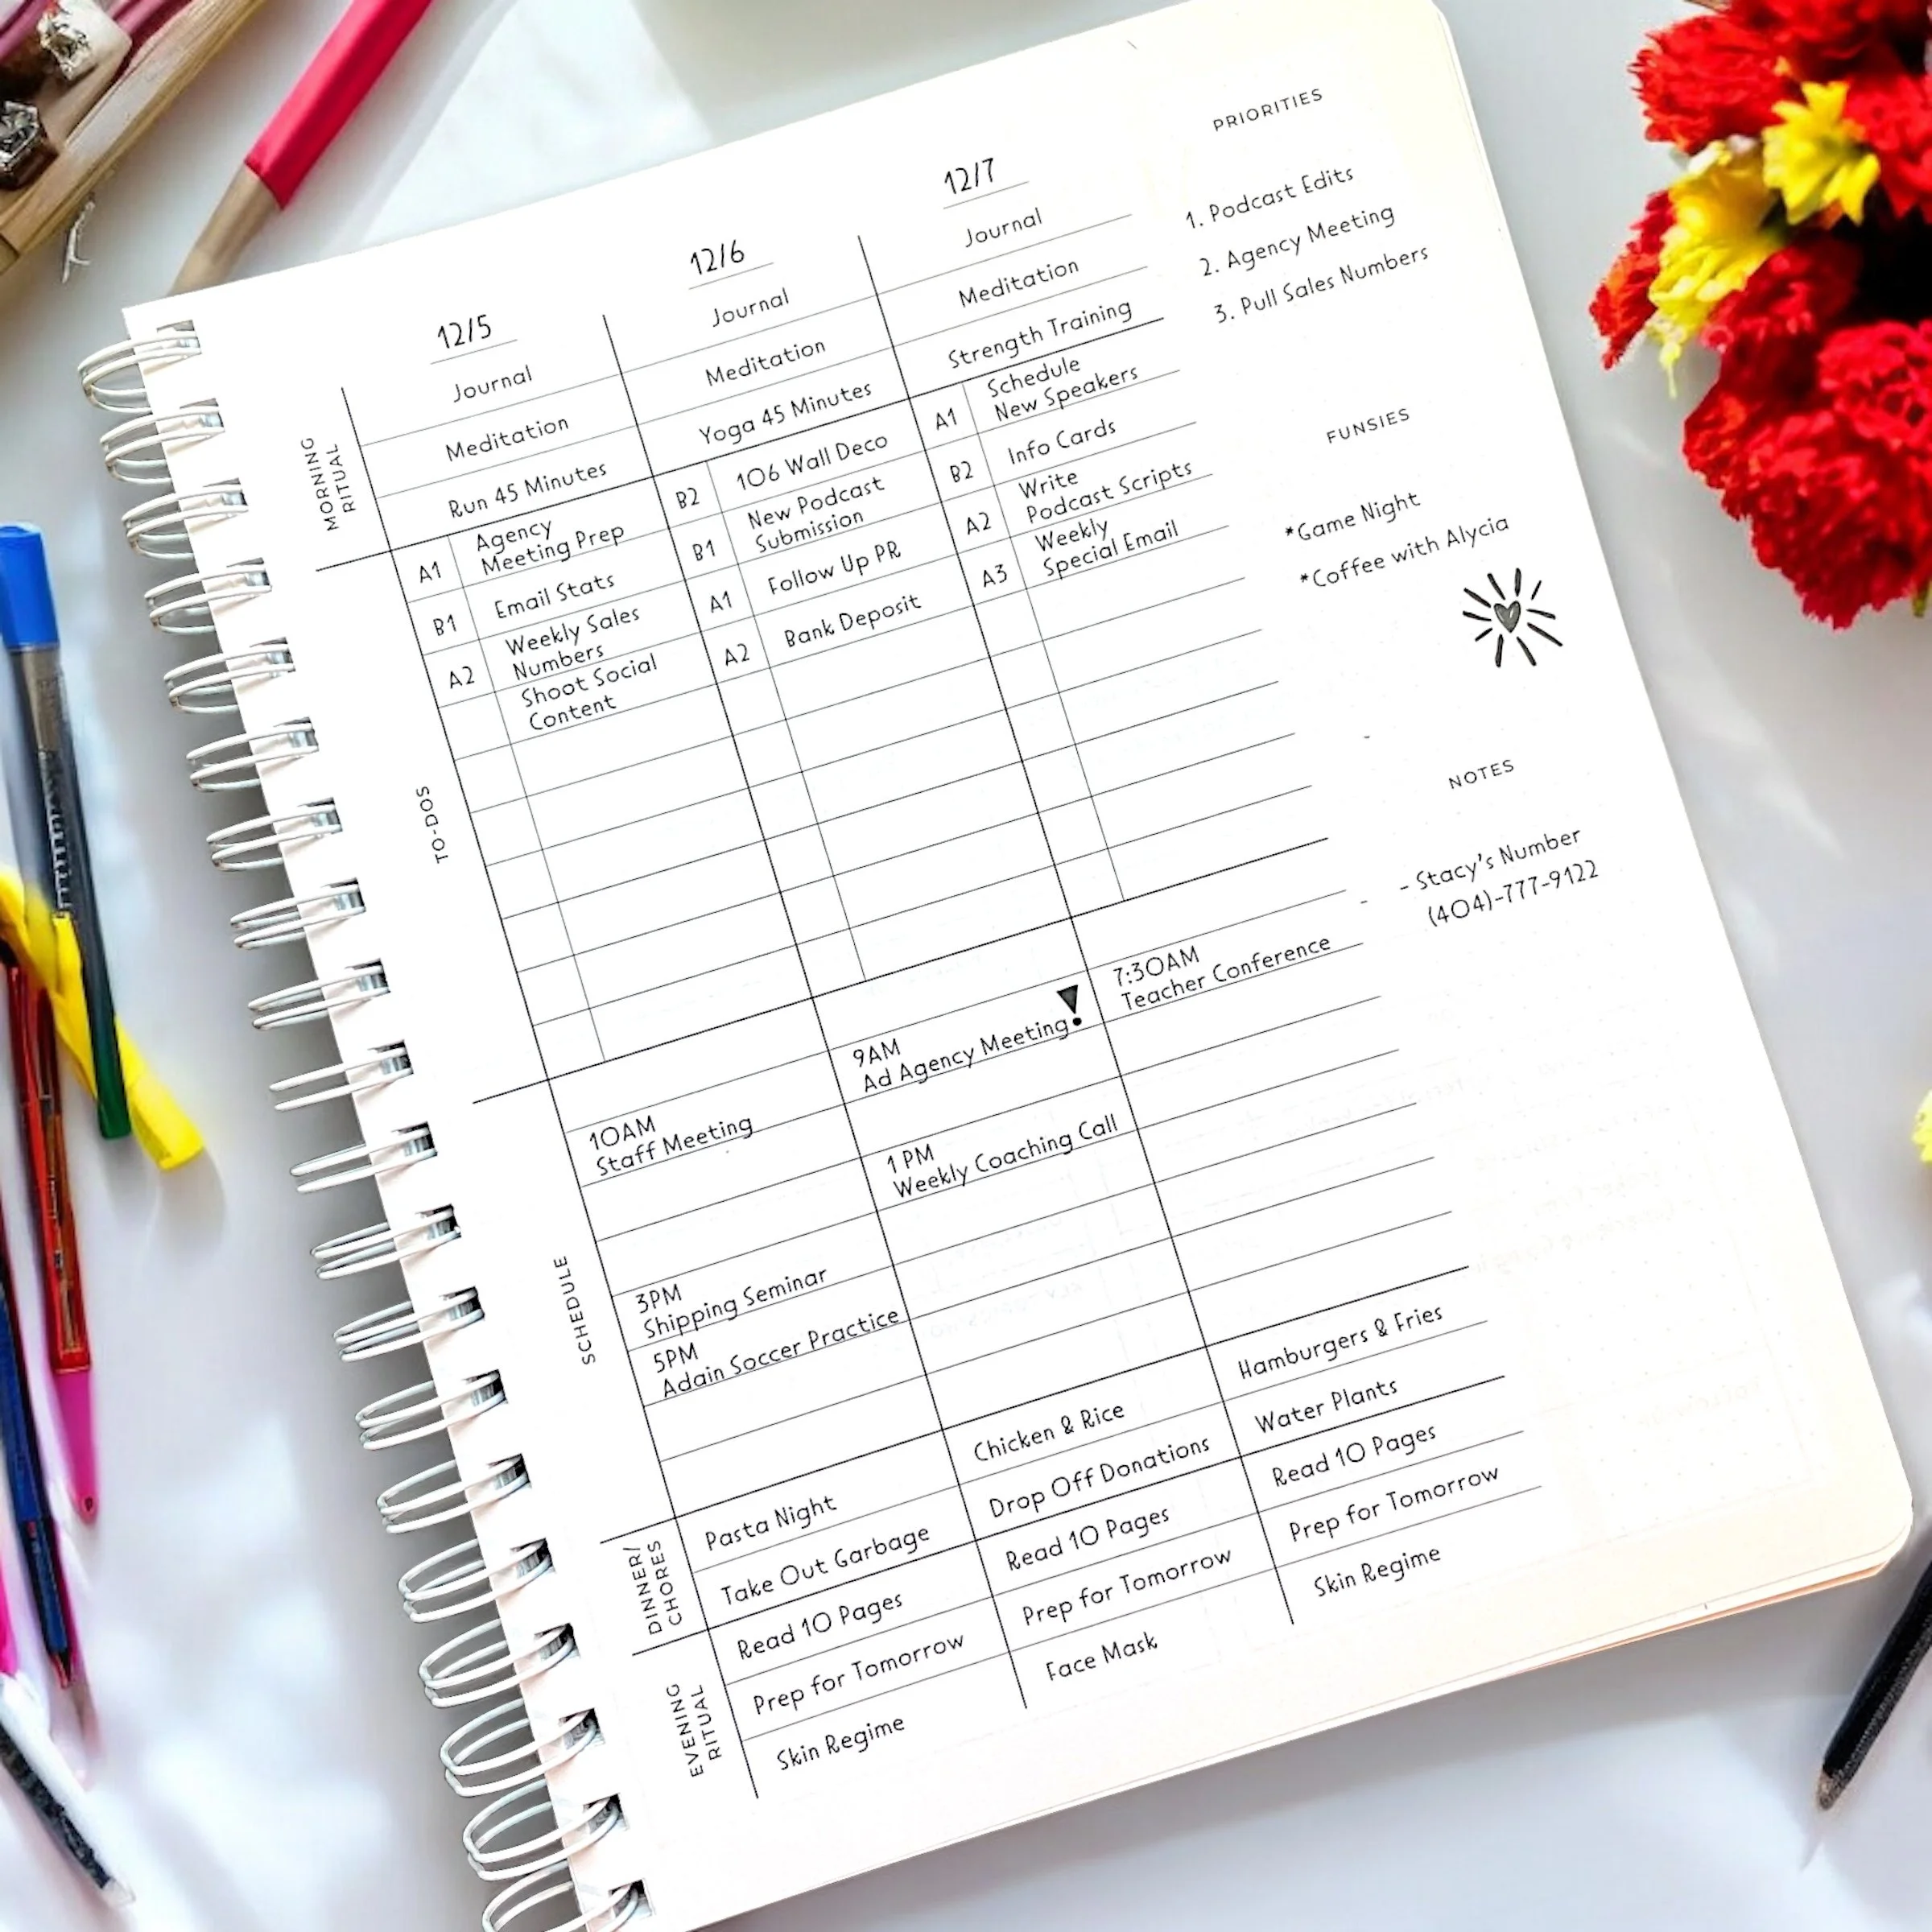 12/5
Journal
Meditation
Run 45 Minutes
12/6
Journal
Meditation
Yoga 45 Minutes
12/7
Journal
Meditation
Strength Training
MORNING
RITUAL
A1
Agency
Meeting Prep
B1
Email Stats
A2
Weekly Sales
Numbers
Shoot Social
Content
B2
106 Wall Deco
B1
New Podcast
Submission
A1
Follow Up PR
A2
Bank Deposit
A1
Schedule
New Speakers
B2
Info Cards
A2
Write
Podcast Scripts
A3
Weekly
Special Email
TO-DOS
SCHEDULE
10AM
Staff Meeting
3PM
Shipping Seminar
5PM
Adain Soccer Practice
9AM
Ad Agency Meeting!
1 PM
Weekly Coaching Call
7:30AM
Teacher Conference
DINNER/
CHORES
Pasta Night
Take Out Garbage
Chicken & Rice
Drop Off Donations
Hamburgers & Fries
Water Plants
EVENING
RITUAL
Read 10 Pages
Prep for Tomorrow
Skin Regime
Read 10 Pages
Prep for Tomorrow
Face Mask
Read 10 Pages
Prep for Tomorrow
Skin Regime
PRIORITIES
1. Podcast Edits
2. Agency Meeting
3. Pull Sales Numbers
FUNSIES
*Game Night
*Coffee with Alycia
NOTES
- Stacy's Number
(404)-777-9122